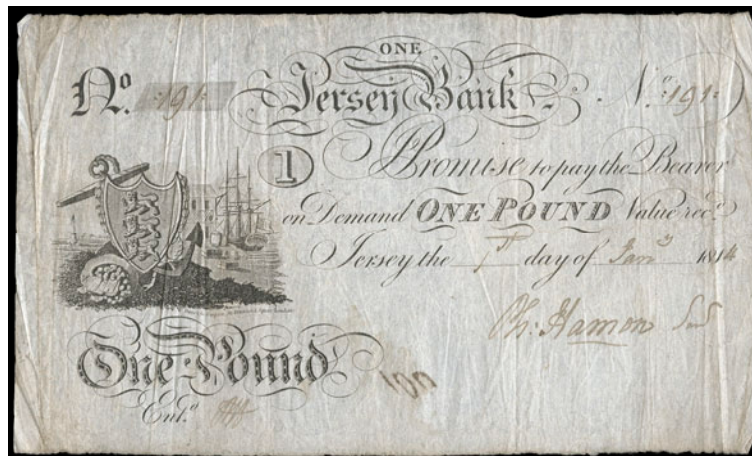 ONE
No. 191 Jersey Bank No. 191
1 I Promise to pay the Bearer
on Demand ONE POUND Value rec.d
Jersey the 1st day of Jan.y 1814
Ph: Hamon
One Pound
100
Ent.d